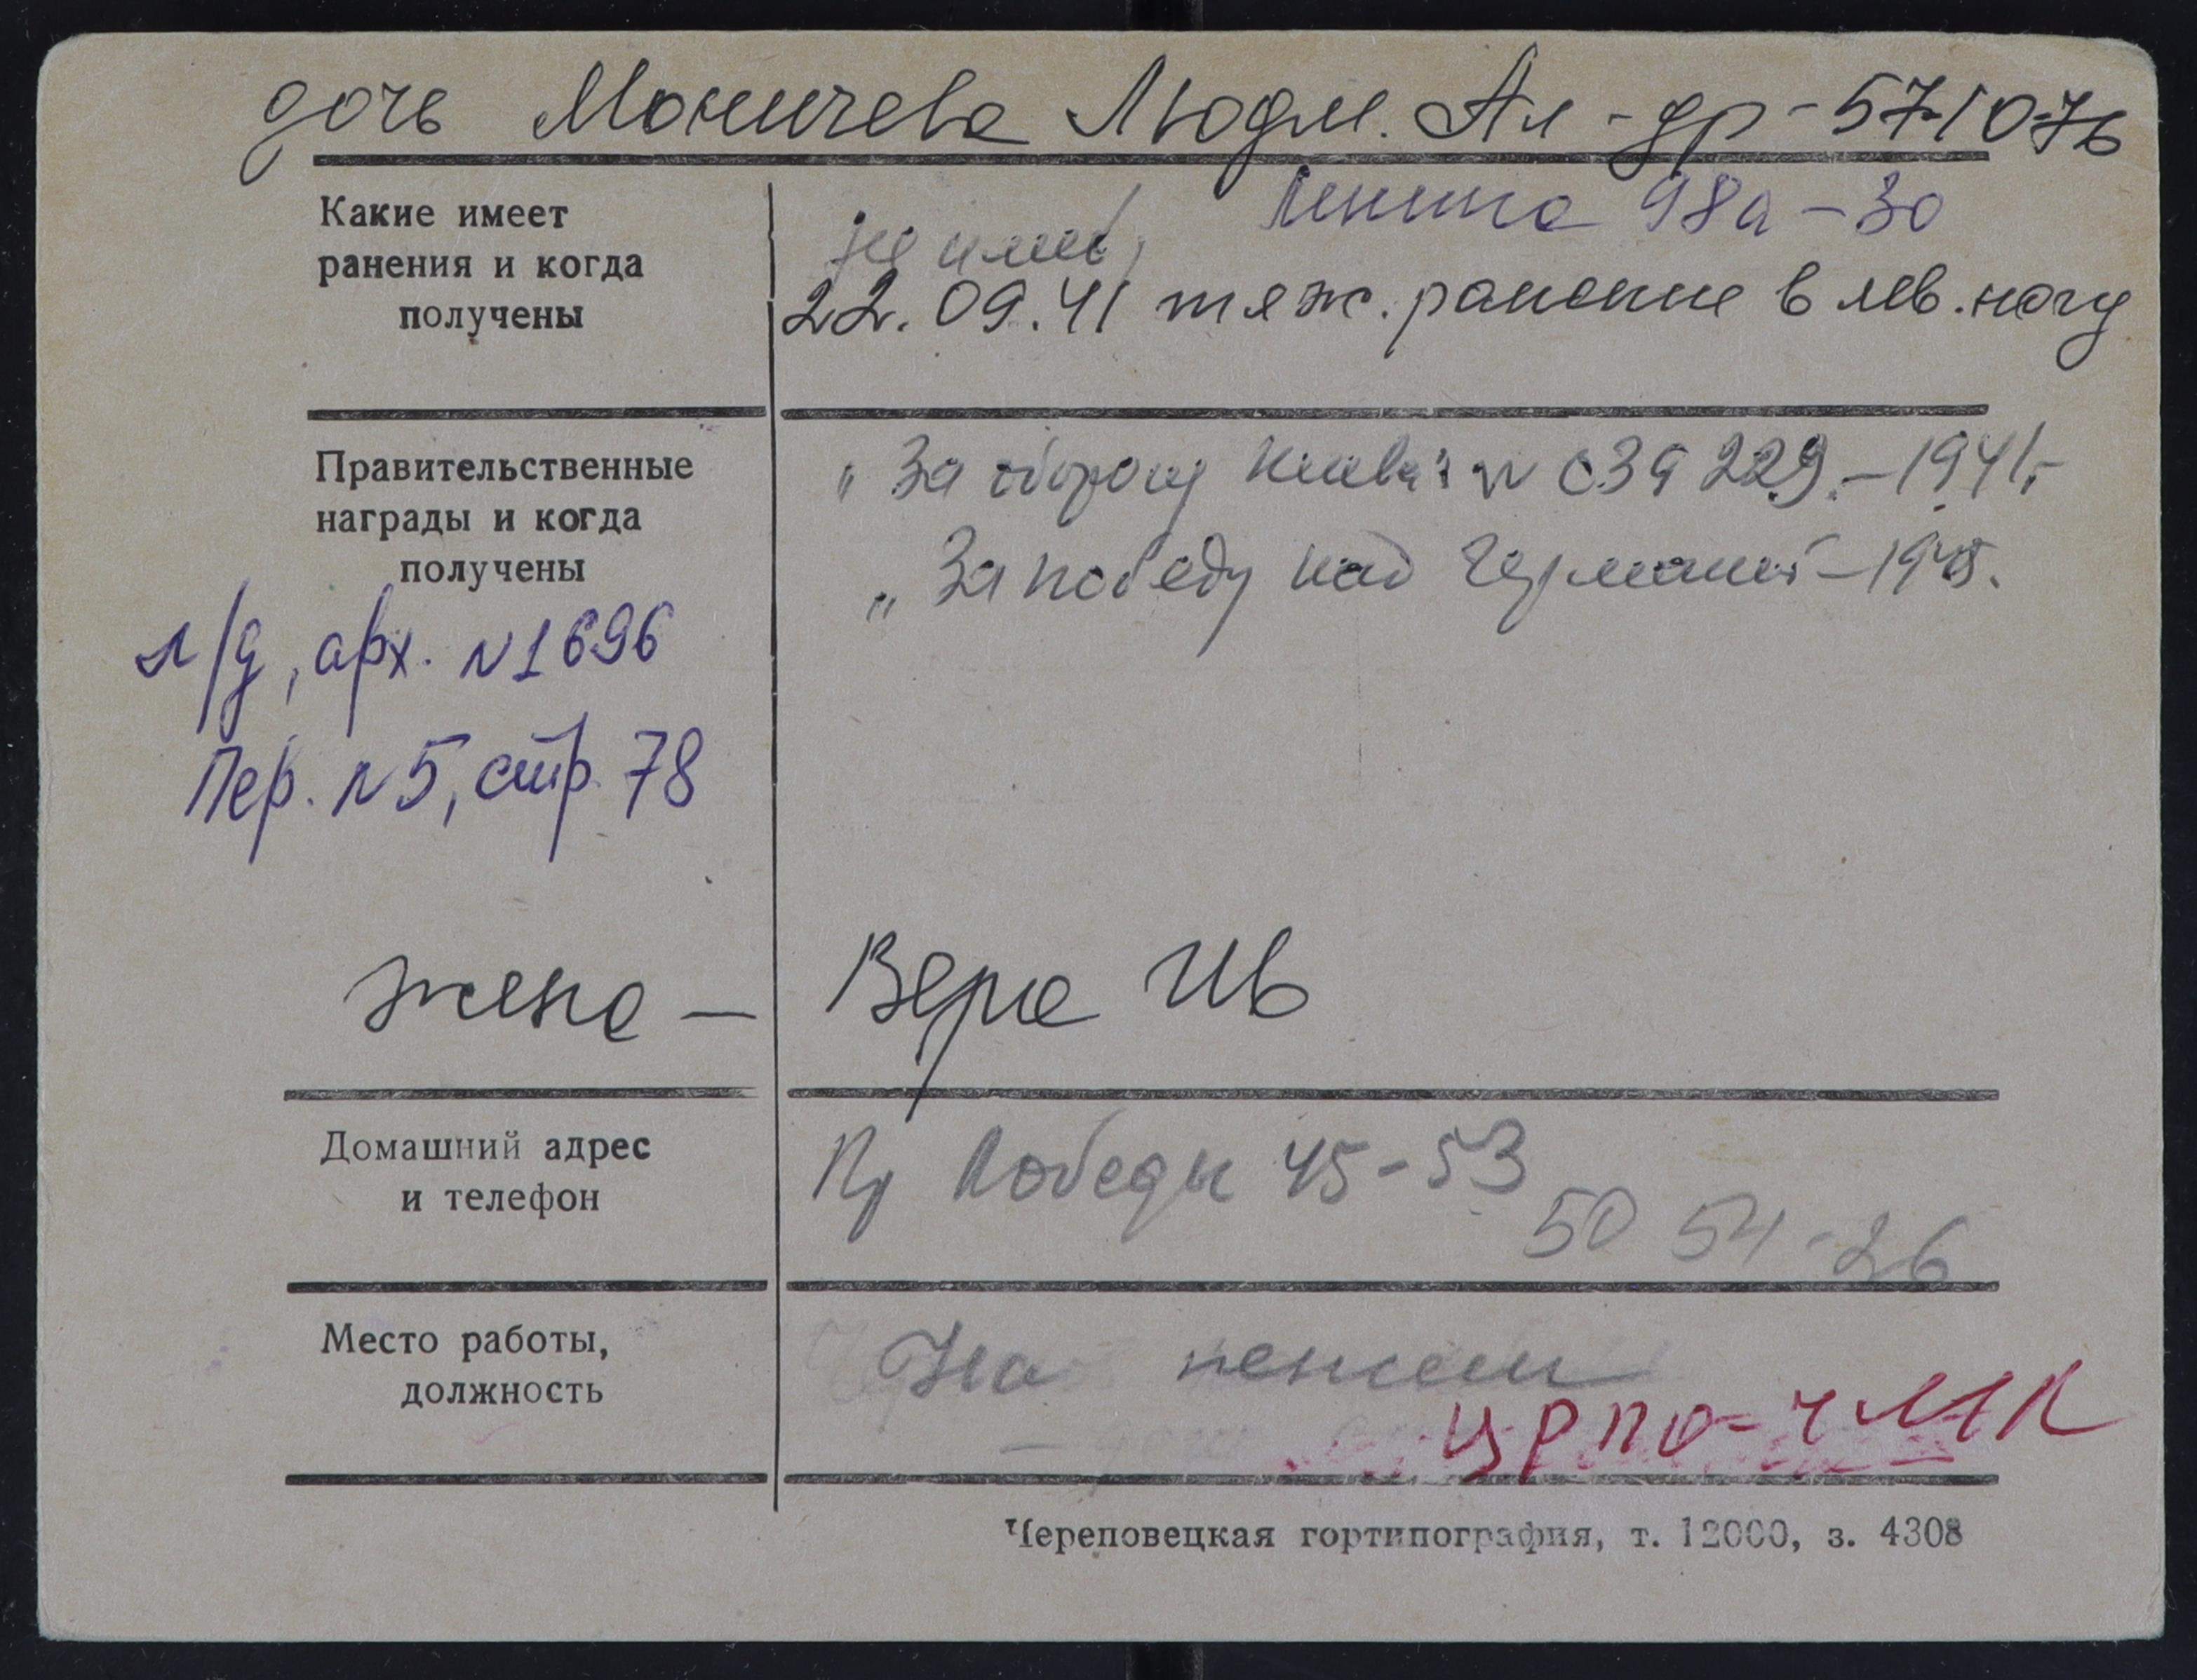 дочь Моничева Людм. Ал-др - 571076
Ленина 98а - 30
Какие имеет
ранения и когда
получены
не имеет
22.09.41 тяж. ранение в лев. ногу
Правительственные
награды и когда
получены
„За оборону Киева" № 039229. - 1941 г.
„За победу над Германией - 1945.
л/д, арх. №1696
Пер. №5, стр. 78
жена - Вера Ив
Домашний адрес
и телефон
Пр Победы 45-53
50 54-26
Место работы,
должность
На пенсии
ЦРПО - ЧМК
Череповецкая гортипография, т. 12000, з. 4308